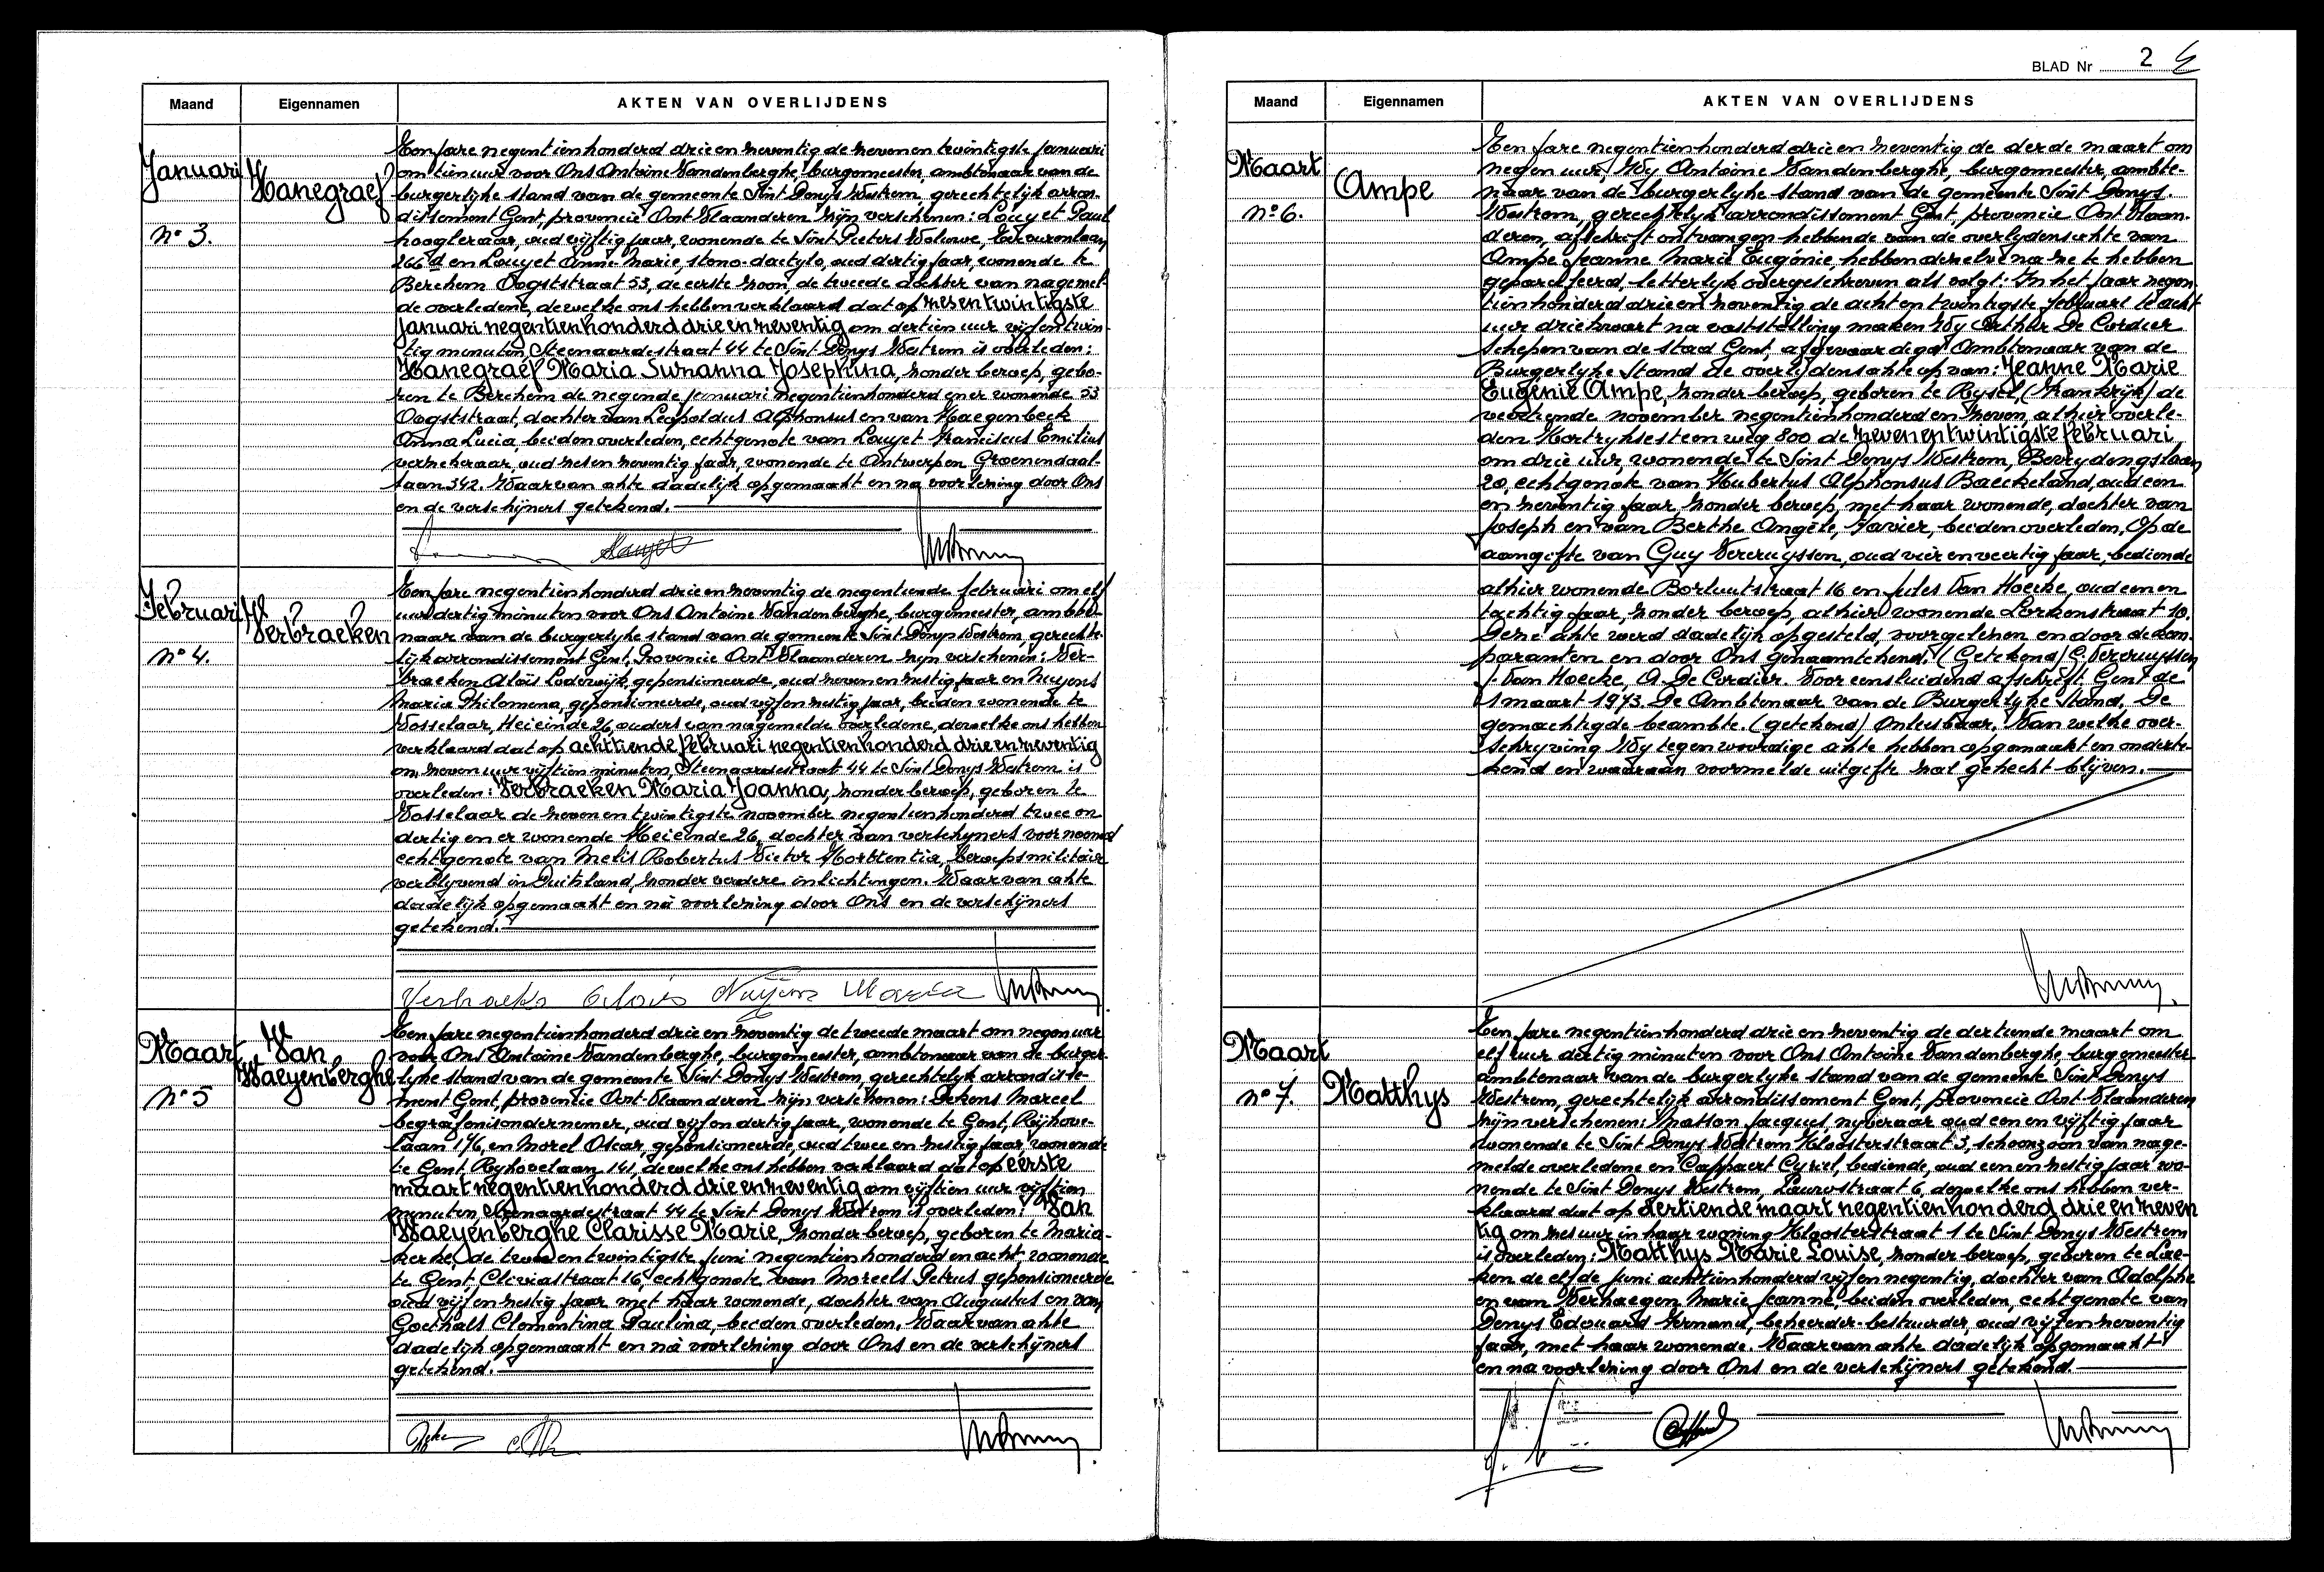 Maand
Eigennamen
AKTEN VAN OVERLIJDENS
Januari
nº 3.
Hanegraef
Een jare negentienhonderd drie en zeventig de zeven en twintigste januari
om tien uur voor Ons Antoine Vandenberghe, burgemeester, ambtenaar van de
burgerlijke stand van de gemeente Sint Denys Westrem, gerechtelijk arron-
dissement Gent, provincie Oost Vlaanderen zijn verschenen: Louyet Paul
hoogleraar, oud vijftig jaar, wonende te Sint Pieters Woluwe,
266 d en Louyet Anne-Marie, steno-dactylo, oud dertig jaar, wonende te
Berchem Oogststraat 53, de eerste zoon, de tweede dochter van nagemel-
de overledene, dewelke ons hebben verklaard dat op zesentwintigste
januari negentienhonderd drie en zeventig om dertien uur vijfentwin-
tig minuten, Steenaardestraat 44 te Sint Denys Westrem is overleden:
Hanegraef Maria Suzanna Josephina, zonder beroep, gebo-
ren te Berchem de negende januari negentienhonderd en er wonende 53
Oogststraat, dochter van Leopoldus Alphonsus en van Haegenbeek
Anna Lucia, beiden overleden, echtgenote van Louyet Franciscus Emilius
verzekeraar, oud zes en zeventig jaar, wonende te Antwerpen Groenendaal-
laan 342. Waarvan akte dadelijk opgemaakt en na voorlezing door Ons
en de verschijners getekend.
Louyet
Februari
nº 4.
Verbraeken
Een jare negentienhonderd drie en zeventig de negentiende februari om elf
uur dertig minuten voor Ons Antoine Vandenberghe, burgemeester, ambte-
naar van de burgerlyke stand van de gemeente Sint Denys Westrem, gerechte-
lijk arrondissement Gent, Provincie Oost Vlaanderen zijn verschenen: Ver-
braeken Aloïs Lodewijk, gepensioneerde, oud zeven en zestig jaar en Nuyens
Maria Philomena, gepensioneerde, oud vijf en zestig jaar, beiden wonende te
Vosselaar, Heieinde 26, ouders van nagemelde overledene, dewelke ons hebben
verklaard dat op achttiende februari negentienhonderd drie en zeventig
om zeven uur vijftien minuten, Steenaardestraat 44 te Sint Denys Westrem is
overleden: Verbraeken Maria Joanna, zonder beroep, geboren te
Vosselaar de zeven en twintigste november negentienhonderd twee en
dertig en er wonende Heieinde 26, dochter van verschijners voornoemd
echtgenote van Melis Robertus Victor Hortentia, beroepsmilitair
verblyvend in Duitsland, zonder verdere inlichtingen. Waarvan akte
dadelijk opgemaakt en na voorlezing door Ons en de verschijners
getekend.
Verbraeken Aloïs Nuyens Maria
Maart
nº 5
Van
Waeyenberghe
Een jare negentienhonderd drie en zeventig de tweede maart om negen uur
voor Ons Antoine Vandenberghe, burgemeester, ambtenaar van de burger-
lyke stand van de gemeente Sint Denys Westrem, gerechtelyk arrondisse-
ment Gent, provincie Oost Vlaanderen zijn verschenen: Dekens Marcel
begrafenisondernemer, oud vijf en dertig jaar, wonende te Gent, Rijhove-
laan 176, en Morel Oscar, gepensioneerde, oud twee en zestig jaar, wonende
te Gent, Ryhovelaan 141, dewelke ons hebben verklaard dat op eerste
maart negentienhonderd drie en zeventig om vijftien uur vijftien
minuten Steenaardestraat 44 te Sint Denys Westrem is overleden: Van
Waeyenberghe Clarisse Marie, zonder beroep, geboren te Maria-
kerke, de twee en twintigste juni negentienhonderd en acht, wonende
te Gent Cliviastraat 16, echtgenote van Moreels Petrus gepensioneerde
oud vijf en zestig jaar met haar wonende, dochter van Augustus en van
Goethals Clementina Paulina, beiden overleden. Waarvan akte
dadelijk opgemaakt en na voorlezing door Ons en de verschijners
getekend.
BLAD Nr 2
Maand
Eigennamen
AKTEN VAN OVERLIJDENS
Maart
nº 6.
Ampe
Een jare negentienhonderd drie en zeventig de derde maart om
negen uur, Wy Antoine Vandenberghe, burgemeester, ambte-
naar van de burgerlyke stand van de gemeente Sint Denys-
Westrem, gerechtelyk arrondissement Gent, provincie Oost Vlaan-
deren, afschrift ontvangen hebbende van de overlydensakte van
Ampe Jeanne Marie Eugénie, hebben dezelve na ze te hebben
geparafeerd, letterlyk overgeschreven als volgt: In het jaar negen-
tienhonderd drie en zeventig de acht en twintigste februari te acht
uur driekwart na vaststelling maken Wy Arthur De Cordier
Schepen van de stad Gent, afgevaardigd Ambtenaar van de
Burgerlyke Stand de overlydensakte op van: Jeanne Marie
Eugénie Ampe, zonder beroep, geboren te Rysel (Frankrijk) de
veertiende november negentienhonderd en zeven, alhier overle-
den Kortryksesteenweg 800 de zevenentwintigste februari
om drie uur, wonende te Sint Denys Westrem, Beerydongslaan
20, echtgenote van Hubertus Alphonsus Baeckeland, oud een
en zeventig jaar zonder beroep, met haar wonende, dochter van
Joseph en van Berthe Angèle, Favier, beiden overleden. Op de
aangifte van Guy Vercruyssen, oud vier en veertig jaar, bediende
alhier wonende Borluutstraat 16 en Jules Van Hoecke, oud een en
tachtig jaar, zonder beroep, alhier wonende Lerkenstraat 10.
Deze akte werd dadelijk opgesteld, voorgelezen en door de kom-
paranten en door Ons genaamtekend. (Getekend) G. Vercruyssen
J. Van Hoecke, A. De Cordier. Voor eensluidend afschrift Gent de
1 maart 1973. De Ambtenaar van de Burgerlyke Stand. De
gemachtigde beambte. (getekend) Onleesbaar. Van welke over-
schryving Wy tegenwoordige akte hebben opgemaakt en onderte-
kend en waaraan voormelde uitgifte zal gehecht blijven.
Maart
nº 7.
Matthys
Een jare negentienhonderd drie en zeventig de dertiende maart om
elf uur dertig minuten voor Ons Antoine Vandenberghe, burgemeester
ambtenaar van de burgerlyke stand van de gemeente Sint Denys
Westrem, gerechtelijk arrondissement Gent, provincie Oost-Vlaanderen
zijn verschenen: Masson Jacques, nyveraar oud een en vijftig jaar
wonende te Sint Denys Westrem Kloosterstraat 3, schoonzoon van nage-
melde overledene en Cappaert Cyriel, bediende, oud een en zestig jaar wo-
nende te Sint Denys Westrem, Laurestraat 6, dewelke ons hebben ver-
klaard dat op dertiende maart negentienhonderd drie en zeven
tig om zes uur in haar woning Kloosterstraat 1 te Sint Denys Westrem
is overleden: Matthys Marie Louise, zonder beroep, geboren te Lae-
ken de elfde juni achttienhonderd vijf en negentig, dochter van Adolphe
en van Verhaegen Marie Jeanne, beiden overleden, echtgenote van
Denys Edouard Armand, beheerder-bestuurder, oud vijf en zeventig
jaar, met haar wonende. Waarvan akte dadelijk opgemaakt
en na voorlezing door Ons en de verschijners getekend.